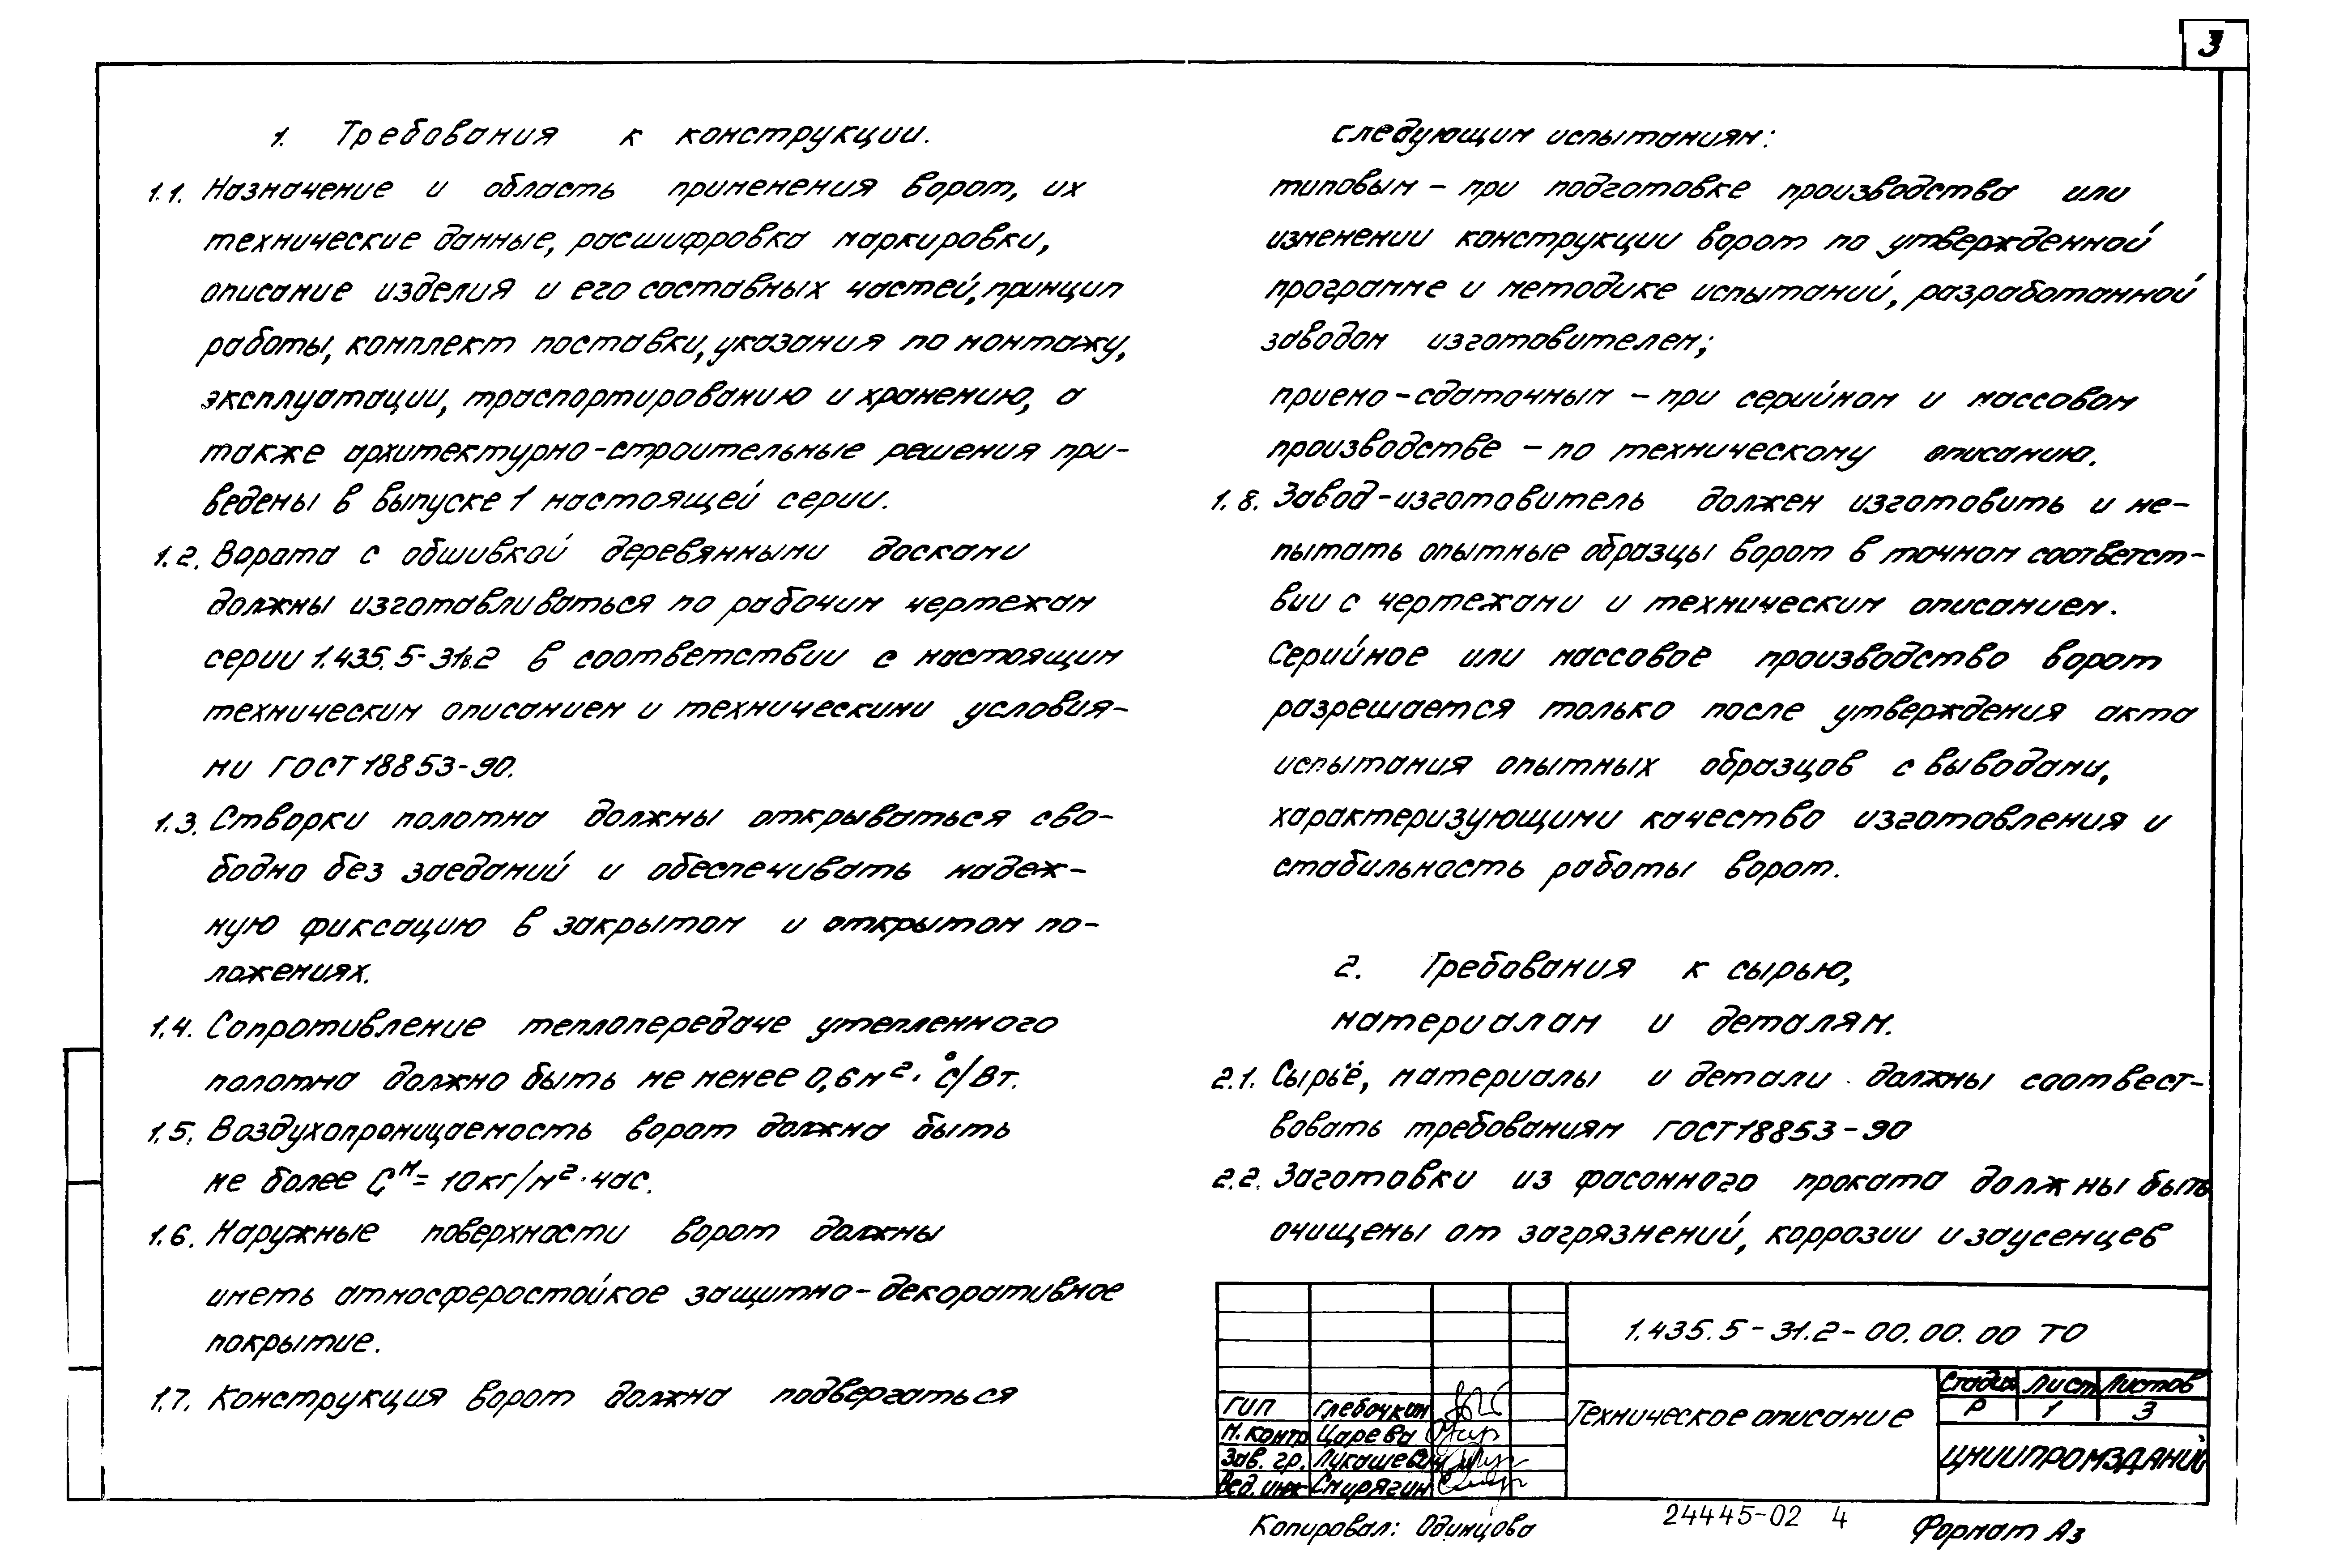 3
1. Требования к конструкции.
1.1. Назначение и область применения ворот, их
технические данные, расшифровка маркировки,
описание изделия и его составных частей, принцип
работы, комплект поставки, указания по монтажу,
эксплуатации, траспортированию и хранению, а
также архитектурно-строительные решения при-
ведены в выпуске 1 настоящей серии.
1.2. Ворота с обшивкой деревянными досками
должны изготавливаться по рабочим чертежам
серии 1.435.5-31в.2 в соответствии с настоящим
техническим описанием и техническими условия-
ми ГОСТ 18853-90.
1.3. Створки полотна должны открываться сво-
бодно без заеданий и обеспечивать надеж-
ную фиксацию в закрытом и открытом по-
ложениях.
1.4. Сопротивление теплопередаче утепленного
полотна должно быть не менее 0,6 м²·°С/Вт.
1.5. Воздухопроницаемость ворот должна быть
не более Gᴴ= 10 кг/м²·час.
1.6. Наружные поверхности ворот должны
иметь атмосферостойкое защитно-декоративное
покрытие.
1.7. Конструкция ворот должна подвергаться
следующим испытаниям:
типовым - при подготовке производства или
изменении конструкции ворот по утвержденной
программе и методике испытаний, разработанной
заводом изготовителем;
приемо-сдаточным - при серийном и массовом
производстве - по техническому описанию.
1.8. Завод-изготовитель должен изготовить и ис-
пытать опытные образцы ворот в точном соответст-
вии с чертежами и техническим описанием.
Серийное или массовое производство ворот
разрешается только после утверждения акта
испытания опытных образцов с выводами,
характеризующими качество изготовления и
стабильность работы ворот.
2. Требования к сырью,
материалам и деталям.
2.1. Сырьё, материалы и детали должны соотвест-
вовать требованиям ГОСТ 18853-90
2.2. Заготовки из фасонного проката должны быть
очищены от загрязнений, коррозии и заусенцев
1.435.5-31.2-00.00.00 ТО
ГИП Глебочкин
Н.контр Царева
Зав. гр. Лукашевич
Вед. инж
Техническое описание
Стадия Лист Листов
Р 1 3
ЦНИИПРОМЗДАНИЙ
Копировал: Одинцова
24445-02 4
Формат А3